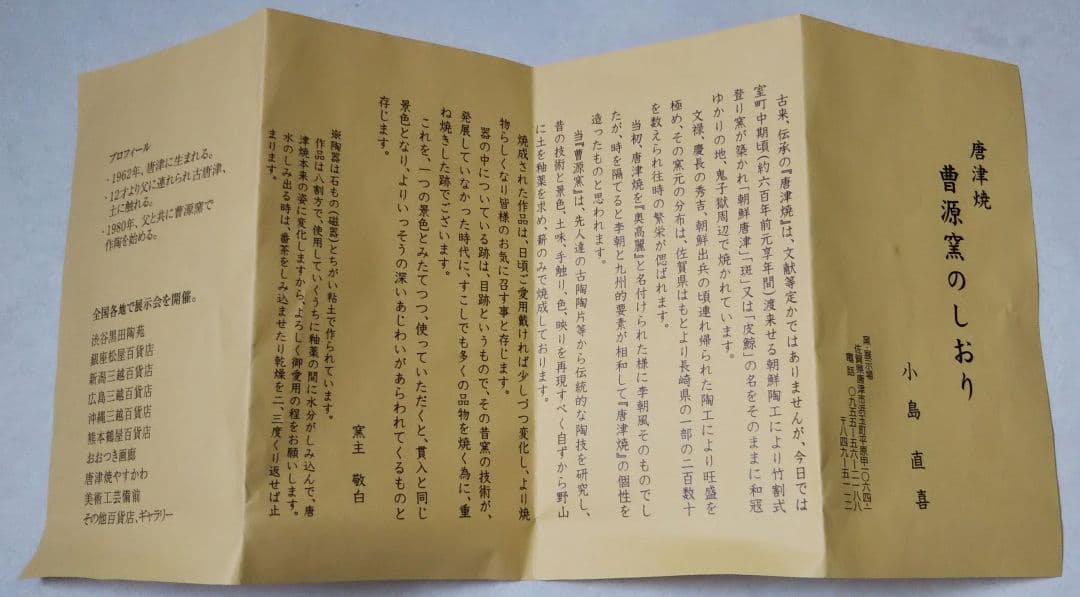 唐津焼
曹源窯のしおり
小島直喜
窯・展示場
佐賀県唐津市浜玉町平原甲一〇六四-一
電話 〇九五五-五六-二一八八
〒八四九-五一二二
古来、伝承の『唐津焼』は、文献等定かではありませんが、今日では
室町中期頃(約六百年前元享年間)渡来せる朝鮮陶工により竹割式
登り窯が築かれ「朝鮮唐津」「斑」又は「皮鯨」の名をそのままに和寇
ゆかりの地、鬼子獄周辺で焼かれています。
文禄、慶長の秀吉、朝鮮出兵の頃連れ帰られた陶工により旺盛を
極め、その窯元の分布は、佐賀県はもとより長崎県の一部の二百数十
を数えられ往時の繁栄が偲ばれます。
当初、唐津焼を『奥高麗』と名付けられた様に李朝風そのものでし
たが、時を隔てると李朝と九州的要素が相和して『唐津焼』の個性を
造ったものと思われます。
当『曹源窯』は、先人達の古陶陶片等から伝統的な陶技を研究し、
昔の技術と景色、土味、手触り、色、映りを再現すべく自ずから野山
に土を釉薬を求め、薪のみで焼成しております。
焼成された作品は、日頃ご愛用戴ければ少しづつ変化し、より焼
物らしくなり皆様のお気に召す事と存じます。
器の中についている跡は、目跡というもので、その昔窯の技術が、
発展していなかった時代に、すこしでも多くの品物を焼く為に、重
ね焼きした跡でございます。
これを、一つの景色とみたてつつ、使っていただくと、貫入と同じ
景色となり、よりいっそうの深いあじわいがあらわれてくるものと
存じます。
窯主 敬白
※陶器は石もの(磁器)とちがい粘土で作られています。
作品は八割方で、使用していくうちに釉薬の間に水分がしみ込んで、唐
津焼本来の姿に変化しますから、よろしく御愛用の程をお願いします。
水のしみ出る時は、番茶をしみ込ませたり乾燥を二、三度くり返せば止
まります。
プロフィール
・1962年、唐津に生まれる。
・12才より父に連れられ古唐津、
土に触れる。
・1980年、父と共に曹源窯で
作陶を始める。
全国各地で展示会を開催。
渋谷黒田陶苑
銀座松屋百貨店
新潟三越百貨店
広島三越百貨店
沖縄三越百貨店
熊本鶴屋百貨店
おおつき画廊
唐津焼やすかわ
美術工芸備前
その他百貨店、ギャラリー